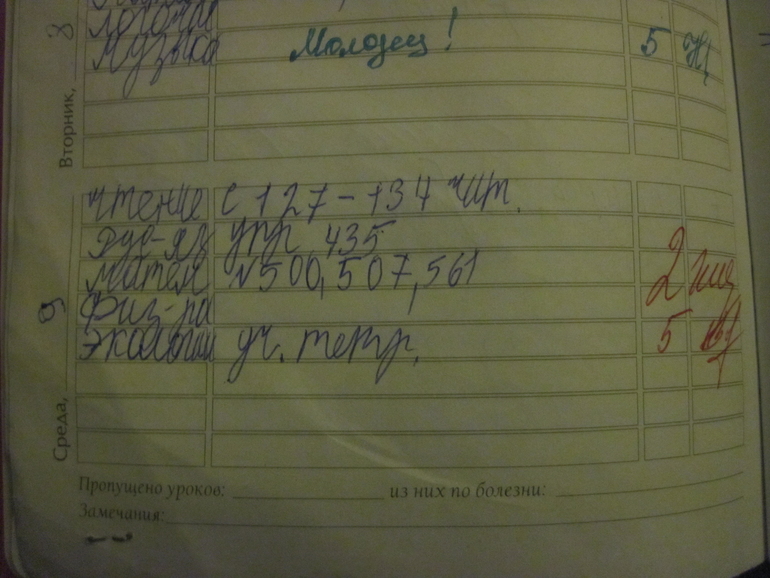 Логопед
Музыка Молодец! 5
Вторник, 8
Чтение с 127-134 чит.
Рус-яз упр 435
Матем №500,507,561 2
Физ-ра
Экология уч. тетр. 5
Среда, 9
Пропущено уроков: из них по болезни:
Замечания: